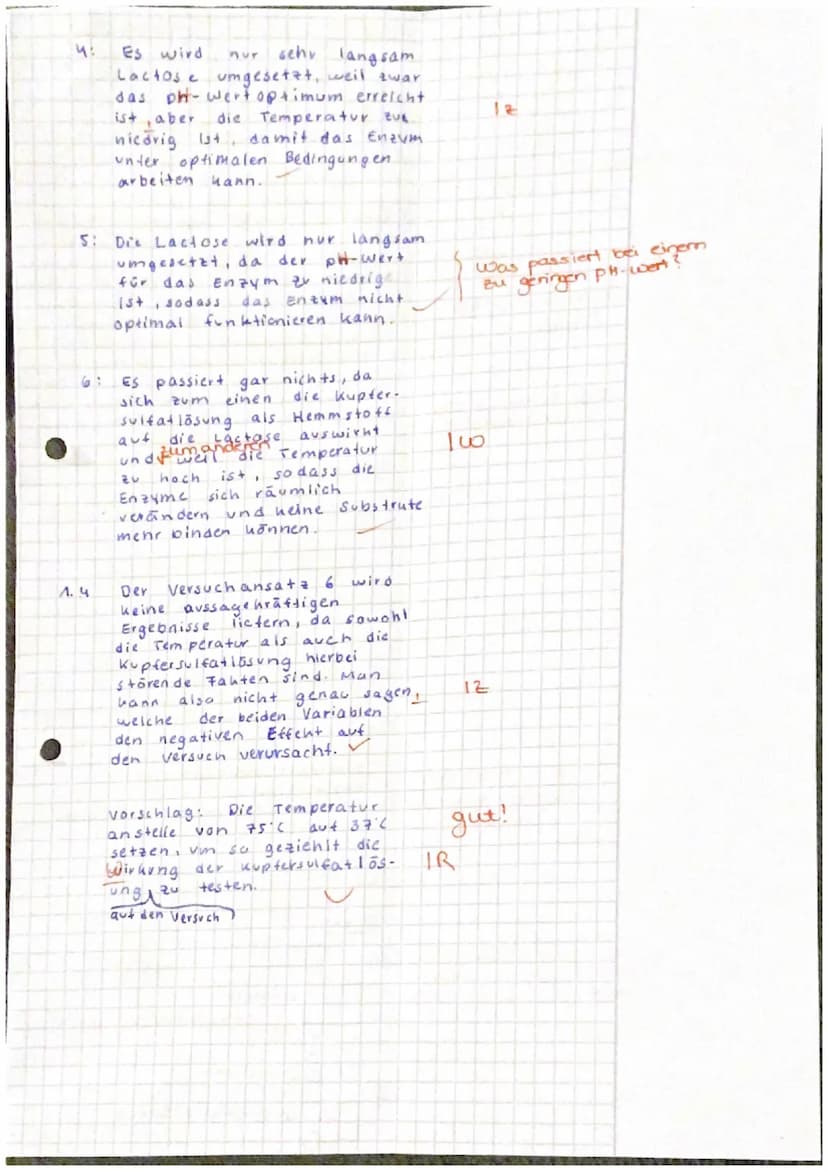 4: Es wird nur sehr langsam
Lactose umgesetzt, weil zwar
das pH-Wertoptimum erreicht
ist, aber die Temperatur zu
1z
niedrig ist, damit das Enzym
unter optimalen Bedingungen
arbeiten kann.
5: Die Lactose wird nur langsam
umgesetzt, da der pH-Wert
für das Enzym zu niedrig
ist, sodass das Enzym nicht
optimal funktionieren kann.
Was passiert bei einem
zu geringen pH-Wert?
6: Es passiert gar nichts, da
sich zum einen die Kupfer-
sulfatlösung als Hemmstoff
auf die Lactase auswirkt
und zum anderen weil die Temperatur
1w
zu hoch ist, sodass die
Enzyme sich räumlich
verändern und keine Substrate
mehr binden können.
1.4 Der Versuchansatz 6 wird
keine aussagekräftigen
Ergebnisse liefern, da sowohl
die Temperatur als auch die
Kupfersulfatlösung hierbei
störende Fakten sind. Man
kann also nicht genau sagen,
1Z
welche der beiden Variablen
den negativen Effekt auf
den Versuch verursacht.
Vorschlag: Die Temperatur
anstelle von 75°C auf 37°C
gut!
setzen, um so geziehlt die
Wirkung der Kupfersulfatlös-
1R
ung zu testen.
auf den Versuch